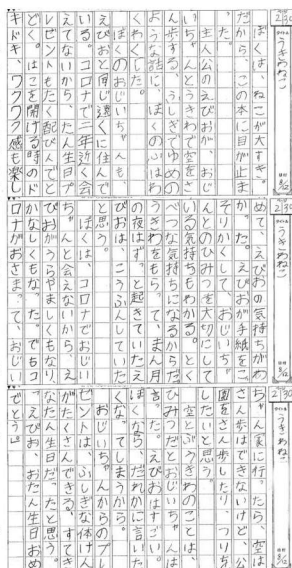 2/30
タイトル
うきわねこ
日付
8/12
ぼくは、ねこが大すき。
だから、この本に目が止ま
った。
主人公のえびおが、おじ
いちゃんとうきわで空をさ
ん歩する、ふしぎでゆめの
ような話に、ぼくの心はわ
くわくした。
ぼくのおじいちゃんも、
えびおと同じ遠くに住んで
いる。コロナで二年近く会
えてないから、たん生日プ
レゼントもたく配びんでと
どく。はこを開ける時のド
キドキ、ワクワク感も楽し
2/30
うきわねこ
8/12
めて、えびおの気持ちがわ
かった。えびおが手紙をこ
っそりかくしておじいちゃ
んとのひみつを大切にして
いる気持ちもわかる。とく
べつな気持ちになるからだ
うきわをもらって、まん月
の夜はずっと起きていたえ
びおは、こうふんしていた
と思う。
ぼくは、コロナでおじい
ちゃんと会えないから、え
びおがうらやましくもなり、
かなしくもなった。でもコ
ロナがおさまって、おじい
2/30
うきわねこ
8/12
ちゃん家に行ったら、空は
さん歩はできないけど、公
園をさん歩したり、つりも
したいと思う。
空とぶうきわのことは、
ひみつだとおじいちゃんは
言った。えびおはすごい。
ぼくなら、だれかに言いた
くなってしまうから。
おじいちゃんからのプレ
ゼントは、ふしぎな体けん
がたくさんできる、すてき
なたん生日だったと思う。
「えびお、おたん生日おめ
でとう。」